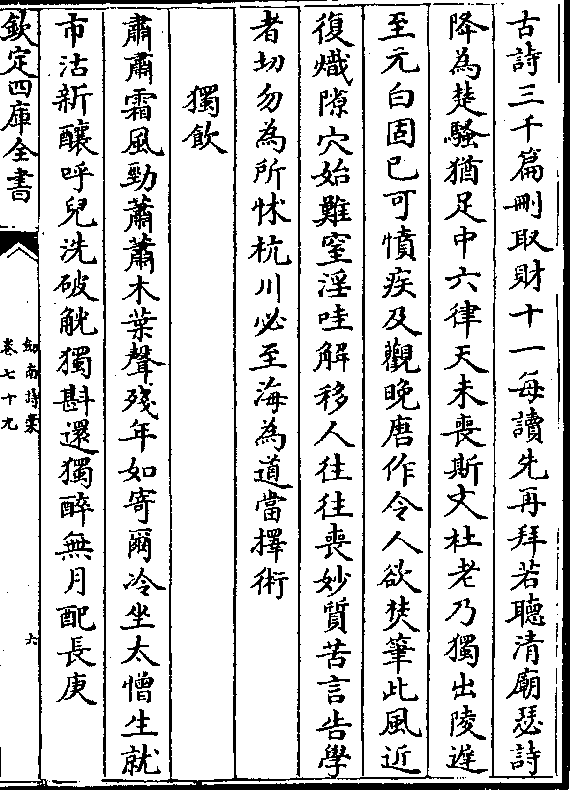 古詩三千篇刪取財十一每讀先再拜若聽清廟瑟詩
降為楚騷猶足中六律天未喪斯文杜老乃獨出陵遲
至元白固已可憤疾及觀晚唐作令人欲焚筆此風近
復熾隙穴始難窒淫哇解移人往往喪妙質苦言告學
者切勿為所怵杭川必至海為道當擇術
獨飲
肅肅霜風勁蕭蕭木葉聲殘年如寄爾冷坐太憎生就
市沽新釀呼兒洗破觥獨斟還獨醉無月配長庚
欽定四庫全書
劍南詩稾
卷七十九
六